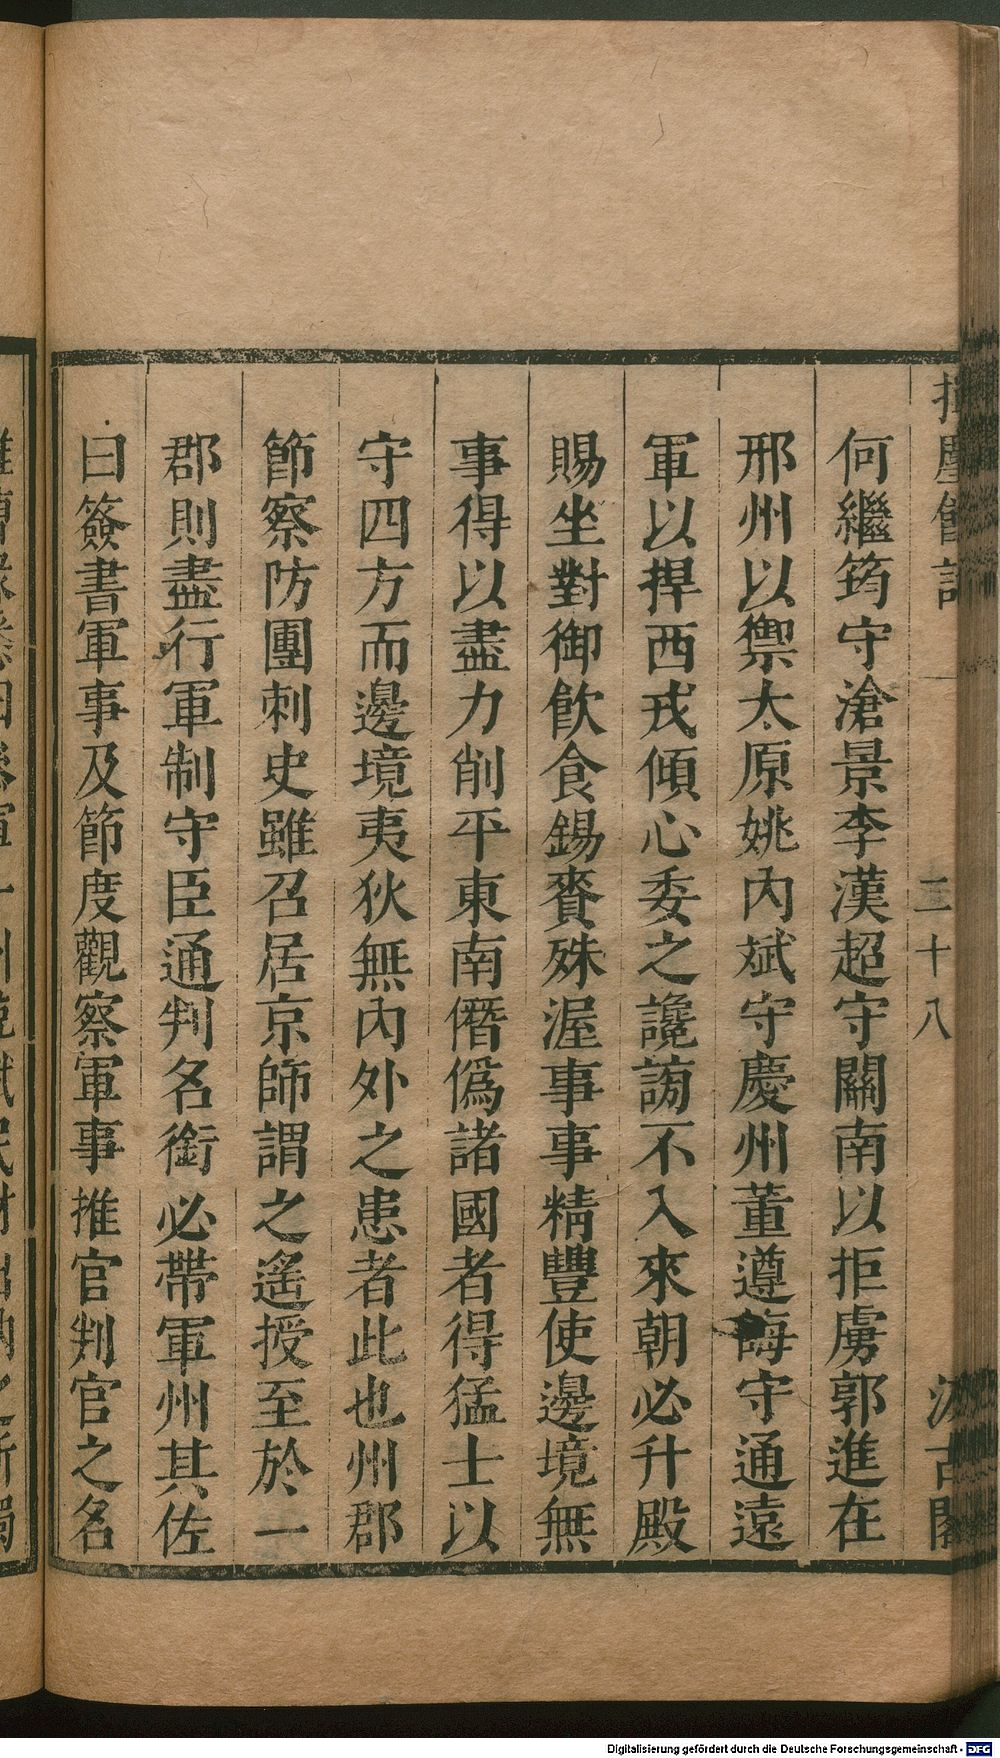 二十八
何繼筠守滄景李漢超守關南以拒虜郭進在
邢州以禦太原姚內斌守慶州董遵誨守通遠
軍以捍西戎傾心委之讒謗不入來朝必升殿
賜坐對御飲食錫賚殊渥事事精豐使邊境無
事得以盡力削平東南僭僞諸國者得猛士以
守四方而邊境夷狄無內外之患者此也州郡
節察防團刺史雖召居京師謂之遙授至於一
郡則盡行軍制守臣通判名銜必帶軍州其佐
曰簽書軍事及節度觀察軍事推官判官之名
Digitalisierung gefördert durch die Deutsche Forschungsgemeinschaft - DFG